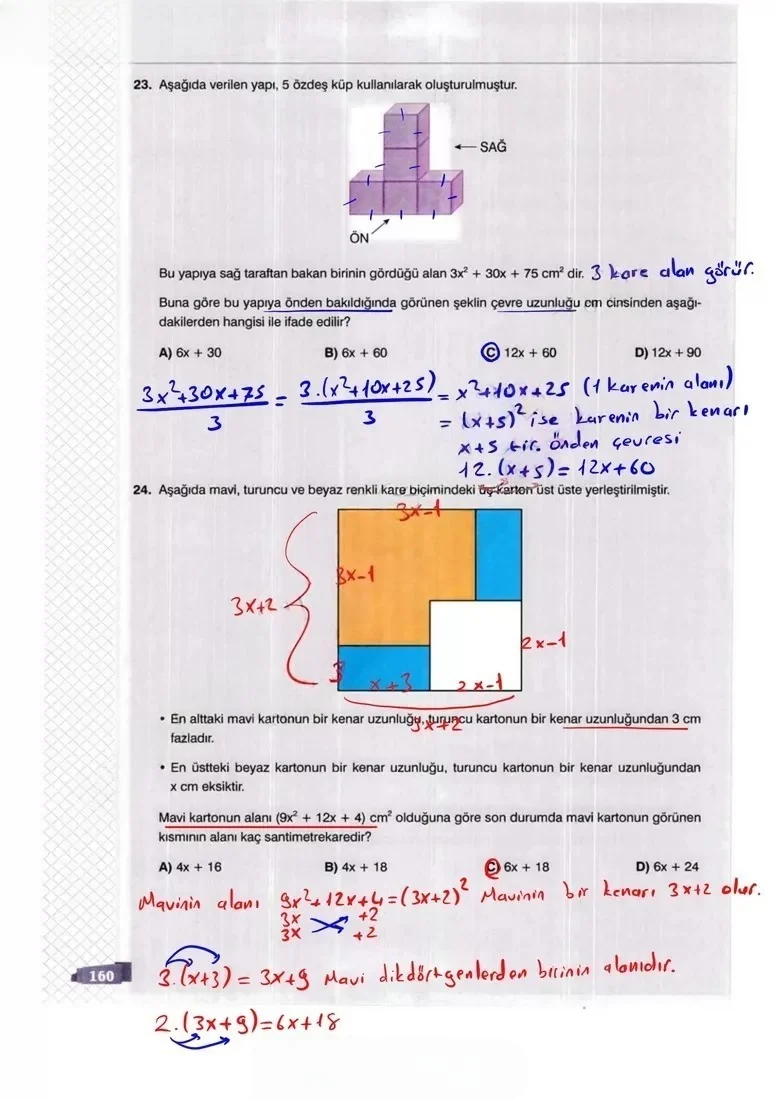 23. Aşağıda verilen yapı, 5 özdeş küp kullanılarak oluşturulmuştur.
SAĞ
ÖN
Bu yapıya sağ taraftan bakan birinin gördüğü alan 3x² + 30x + 75 cm² dir. 3 kare alan görür.
Buna göre bu yapıya önden bakıldığında görünen şeklin çevre uzunluğu cm cinsinden aşağı-
dakilerden hangisi ile ifade edilir?
A) 6x + 30 B) 6x + 60 C) 12x + 60 D) 12x + 90
3x²+30x+75 / 3 = 3.(x²+10x+25) / 3 = x²+10x+25 (1 karenin alanı)
= (x+5)² ise karenin bir kenarı
x+5 tir. önden çevresi
12.(x+5)= 12x+60
24. Aşağıda mavi, turuncu ve beyaz renkli kare biçimindeki üç karton üst üste yerleştirilmiştir.
3x-1
3x-1
3x+2
2x-1
3
x+3 2x-1
3x+2
• En alttaki mavi kartonun bir kenar uzunluğu, turuncu kartonun bir kenar uzunluğundan 3 cm
fazladır.
• En üstteki beyaz kartonun bir kenar uzunluğu, turuncu kartonun bir kenar uzunluğundan
x cm eksiktir.
Mavi kartonun alanı (9x² + 12x + 4) cm² olduğuna göre son durumda mavi kartonun görünen
kısmının alanı kaç santimetrekaredir?
A) 4x + 16 B) 4x + 18 C) 6x + 18 D) 6x + 24
Mavinin alanı 9x²+12x+4=(3x+2)² Mavinin bir kenarı 3x+2 olur.
3x +2
3x +2
3.(x+3) = 3x+9 Mavi dikdörtgenlerden birinin alanıdır.
160
2.(3x+9)=6x+18